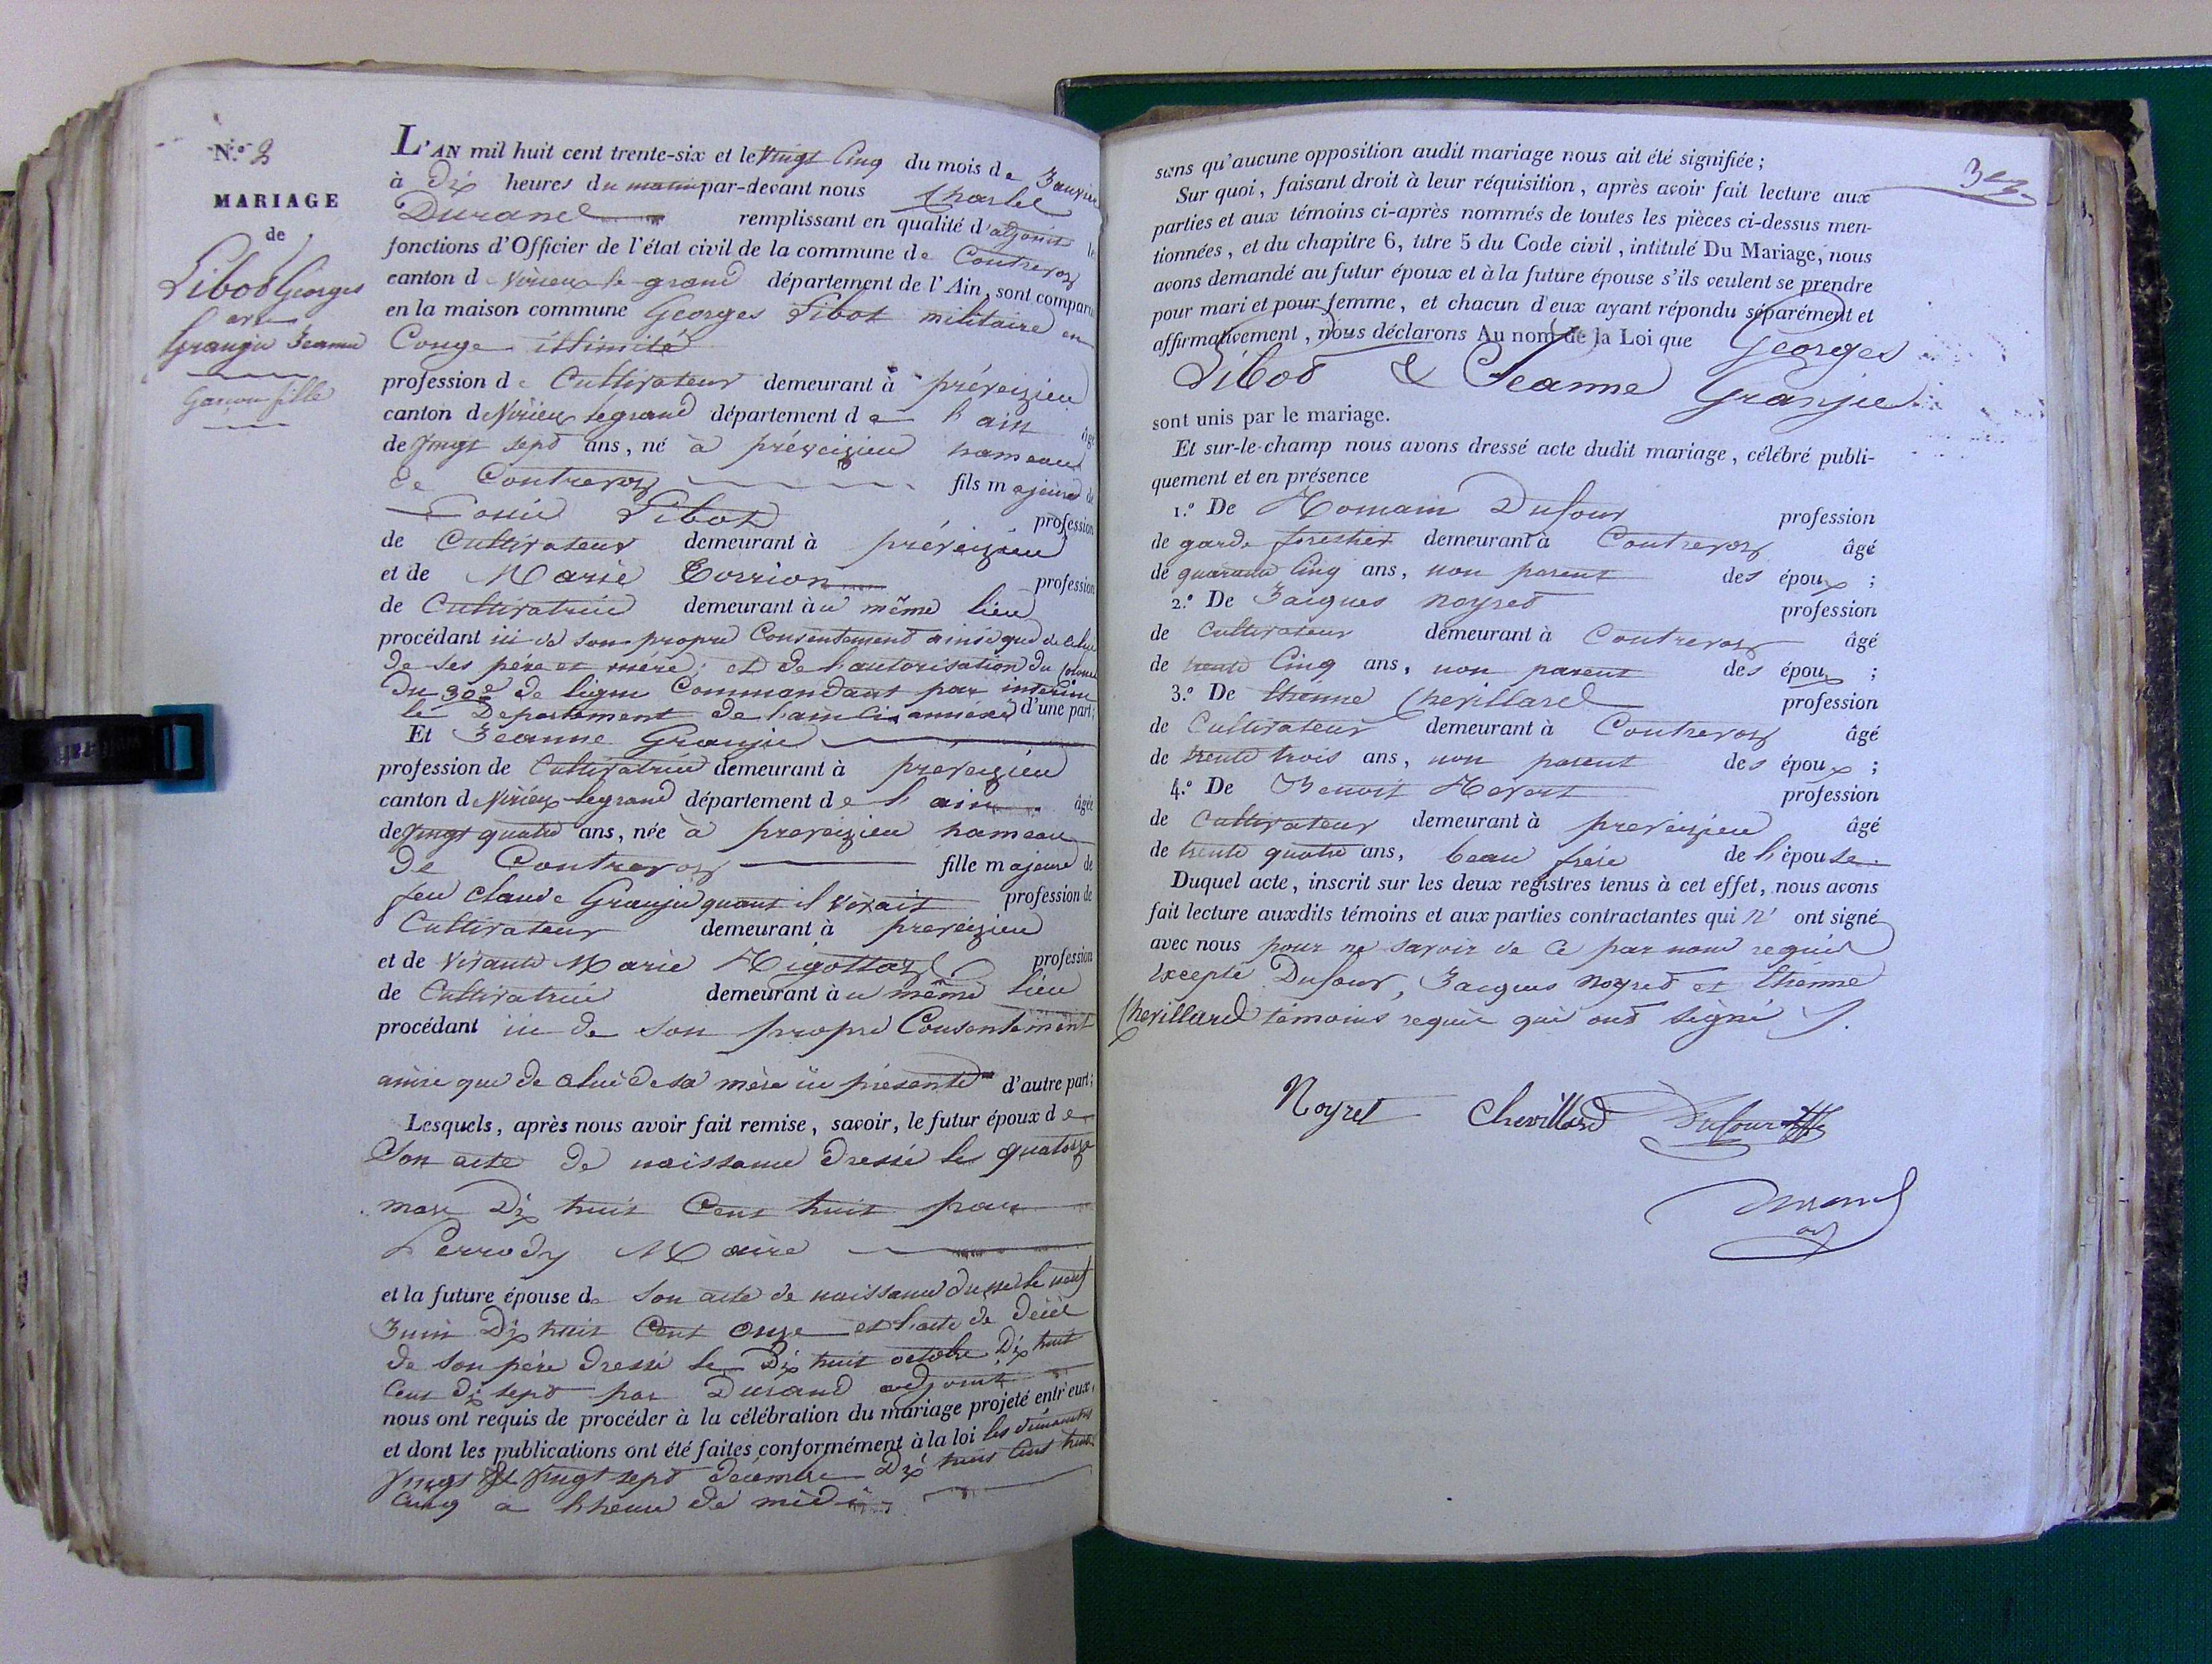 N.º 2
MARIAGE
de
Libot Georges
avec
Granju Jeanne
Garçon fille
L'AN mil huit cent trente-six et le vingt Cinq du mois de Janvier
à Dix heures du matin par-devant nous Charle
Durand remplissant en qualité d'adjoint les
fonctions d'Officier de l'état civil de la commune de Contrevoz
canton de Virieux le grand département de l'Ain, sont comparu
en la maison commune Georges Libot militaire en
Conge illimité
profession de Cultivateur demeurant à préveizieu
canton de Virieux legrand département de l'ain âgé
de vingt sept ans, né à préveizieu hameau
de Contrevoz fils majeur de
Libot profession
de Cultivateur demeurant à préveizieu
et de Marie Corrion profession
de Cultivatrice demeurant àu même lieu
procédant ici de son propre Consentement ainsi que de celui
de ses père et mère; et de l'autorisation du Colonel
du 30e de ligne Commandant par interim
le Departement de l'ain ci annéxé d'une part;
Et Jeanne Granju
profession de Cultivatrice demeurant à preveizieu
canton de Virieux legrand département de l'ain âgée
de vingt quatre ans, née à preveizieu hameau
de Contrevoz fille majeure de
feu Claude Granju quant il vivait profession de
Cultivateur demeurant à preveizieu
et de vivante Marie Rigottaz profession
de Cultivatrice demeurant àu même lieu
procédant ici de son propre Consentement
ainsi que de celui de sa mère ici présente d'autre part;
Lesquels, après nous avoir fait remise, savoir, le futur époux de
Son acte de naissance dressé le quatorze
mars Dix huit Cent huit par
Perrody Maire
et la future épouse de son acte de naissance dressé le neuf
Juin Dix huit Cent onze et l'acte de décès
de son père dressé le Dix huit octobre Dix huit
Cent dix sept par Durand adjoint
nous ont requis de procéder à la célébration du mariage projeté entr'eux,
et dont les publications ont été faites conformément à la loi les dimanches
vingt et vingt sept décembre Dix huit Cent trente
Cinq a l'heure de midi
3
sans qu'aucune opposition audit mariage nous ait été signifiée;
Sur quoi, faisant droit à leur réquisition, après avoir fait lecture aux
parties et aux témoins ci-après nommés de toutes les pièces ci-dessus men-
tionnées, et du chapitre 6, titre 5 du Code civil, intitulé Du Mariage, nous
avons demandé au futur époux et à la future épouse s'ils veulent se prendre
pour mari et pour femme, et chacun d'eux ayant répondu séparément et
affirmativement, nous déclarons Au nom de la Loi que Georges
Libot & Jeanne Granjue
sont unis par le mariage.
Et sur-le-champ nous avons dressé acte dudit mariage, célébré publi-
quement et en présence
1.º De Romain Dufour profession
de garde forestier demeurant à Contrevoz âgé
de quarante Cinq ans, non parent des époux;
2.º De Jacques Noyret profession
de Cultivateur demeurant à Contrevoz âgé
de trente Cinq ans, non parent des époux;
3.º De Etienne Chevillard profession
de Cultivateur demeurant à Contrevoz âgé
de trente trois ans, non parent des époux;
4.º De Benoit profession
de Cultivateur demeurant à preveizieu âgé
de trente quatre ans, beau frère de l'épouse
Duquel acte, inscrit sur les deux registres tenus à cet effet, nous avons
fait lecture auxdits témoins et aux parties contractantes qui n'ont signé
avec nous pour ne savoir de ce par nous requis
Excepté Dufour, Jacques Noyret et Etienne
Chevillard témoins requis qui ont signé
Noyret Chevillard Dufour
Durand
adj